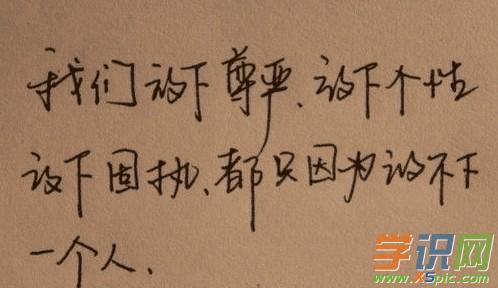 我们放下尊严、放下个性
放下固执、都只因为放不下
一个人、
学识网
www.XSpic.com